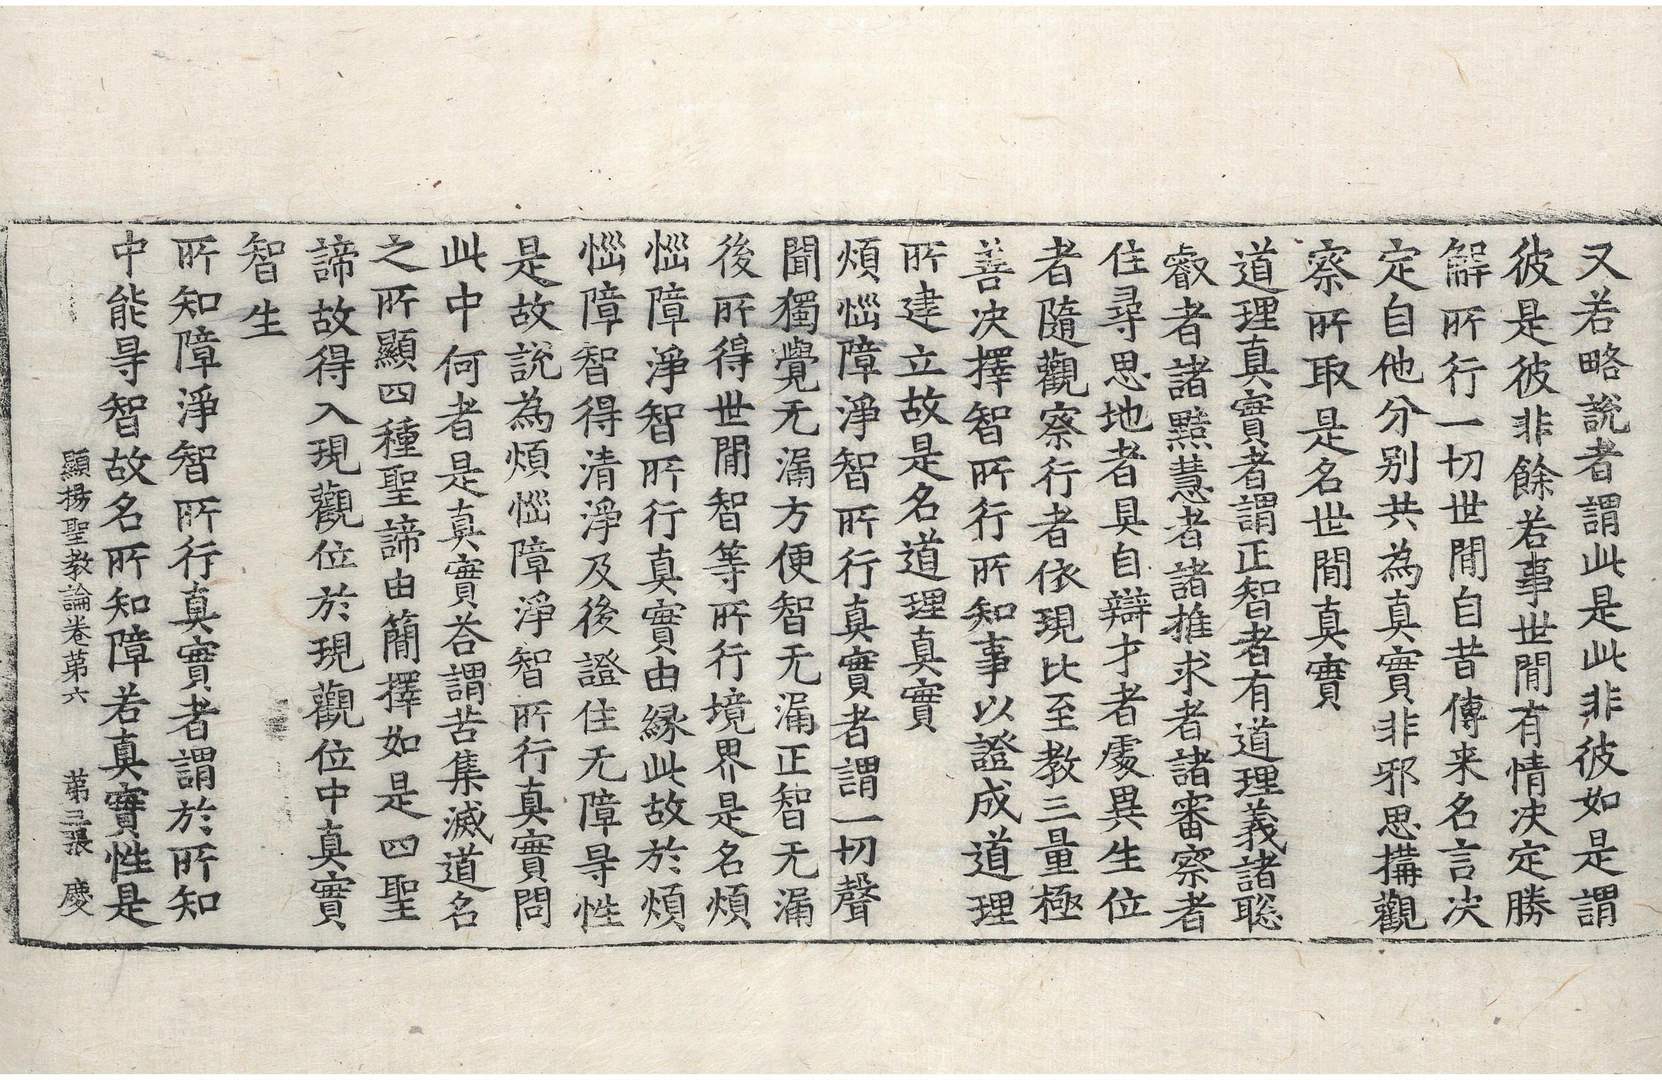 又若略說者謂此是此非彼如是謂
彼是彼非餘若事世閒有情决定勝
解所行一切世閒自昔傳来名言决
定自他分别共為真實非邪思搆觀
察所取是名世閒真實
道理真實者謂正智者有道理義諸聡
叡者諸黠慧者諸推求者諸審察者
住尋思地者具自辯才者䖏異生位
者隨觀察行者依現比至教三量極
善决擇智所行所知事以證成道理
所建立故是名道理真實
煩惱障淨智所行真實者謂一切聲
聞獨覺无漏方便智无漏正智无漏
後所得世閒智等所行境界是名煩
惱障淨智所行真實由緣此故於煩
惱障智得清淨及後證住无障㝵性
是故說為煩惱障淨智所行真實問
此中何者是真實荅謂苦集滅道名
之所顯四種聖諦由簡擇如是四聖
諦故得入現觀位於現觀位中真實
智生
所知障淨智所行真實者謂於所知
中能㝵智故名所知障若真實性是
顯揚聖教論卷第六 第三張 慶